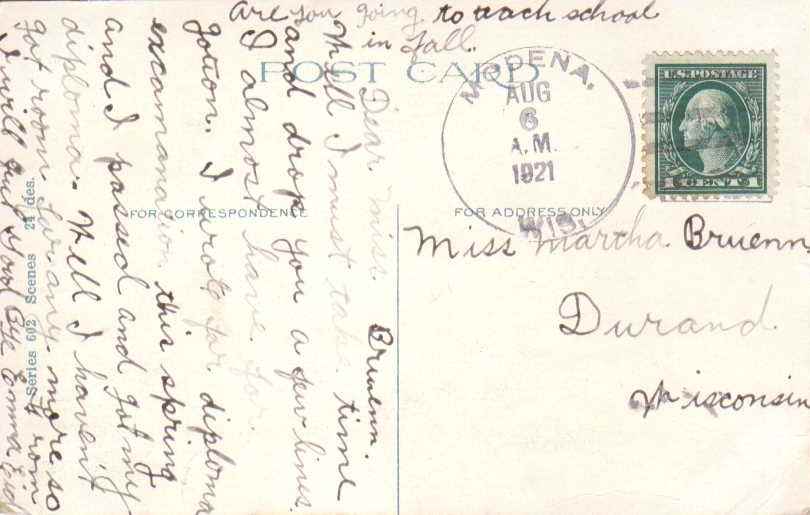 Are you going to teach school
in fall.
POST CARD
MODENA,
AUG
6
A.M.
1921
WIS.
U.S. POSTAGE
1 CENT 1
FOR CORRESPONDENCE
FOR ADDRESS ONLY
Miss Martha Bruenn
Durand
Wisconsin
Dear Miss. Bruenn.
Well I must take time
and drop you a few lines.
I almost have for
gotton. I wrote for diploma
excamanation this spring
and I passed and got my
diploma. Well I haven't
got room for any more so
I will say Good Bye Emma
Series 602 Scenes 24 des.